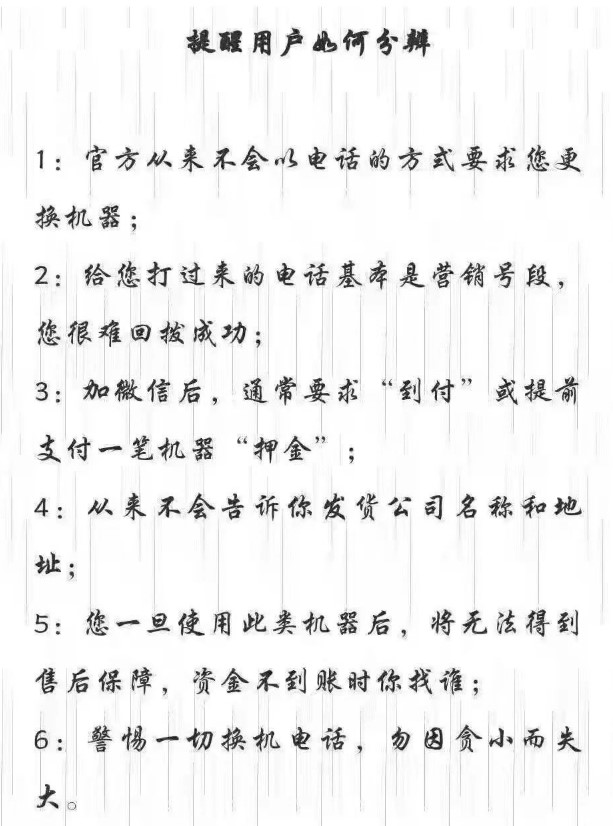 提醒用户如何分辨
1：官方从来不会以电话的方式要求您更
换机器；
2：给您打过来的电话基本是营销号段，
您很难回拨成功；
3：加微信后，通常要求“到付”或提前
支付一笔机器“押金”；
4：从来不会告诉你发货公司名称和地
址；
5：您一旦使用此类机器后，将无法得到
售后保障，资金不到账时你找谁；
6：警惕一切换机电话，勿因贪小而失
大。